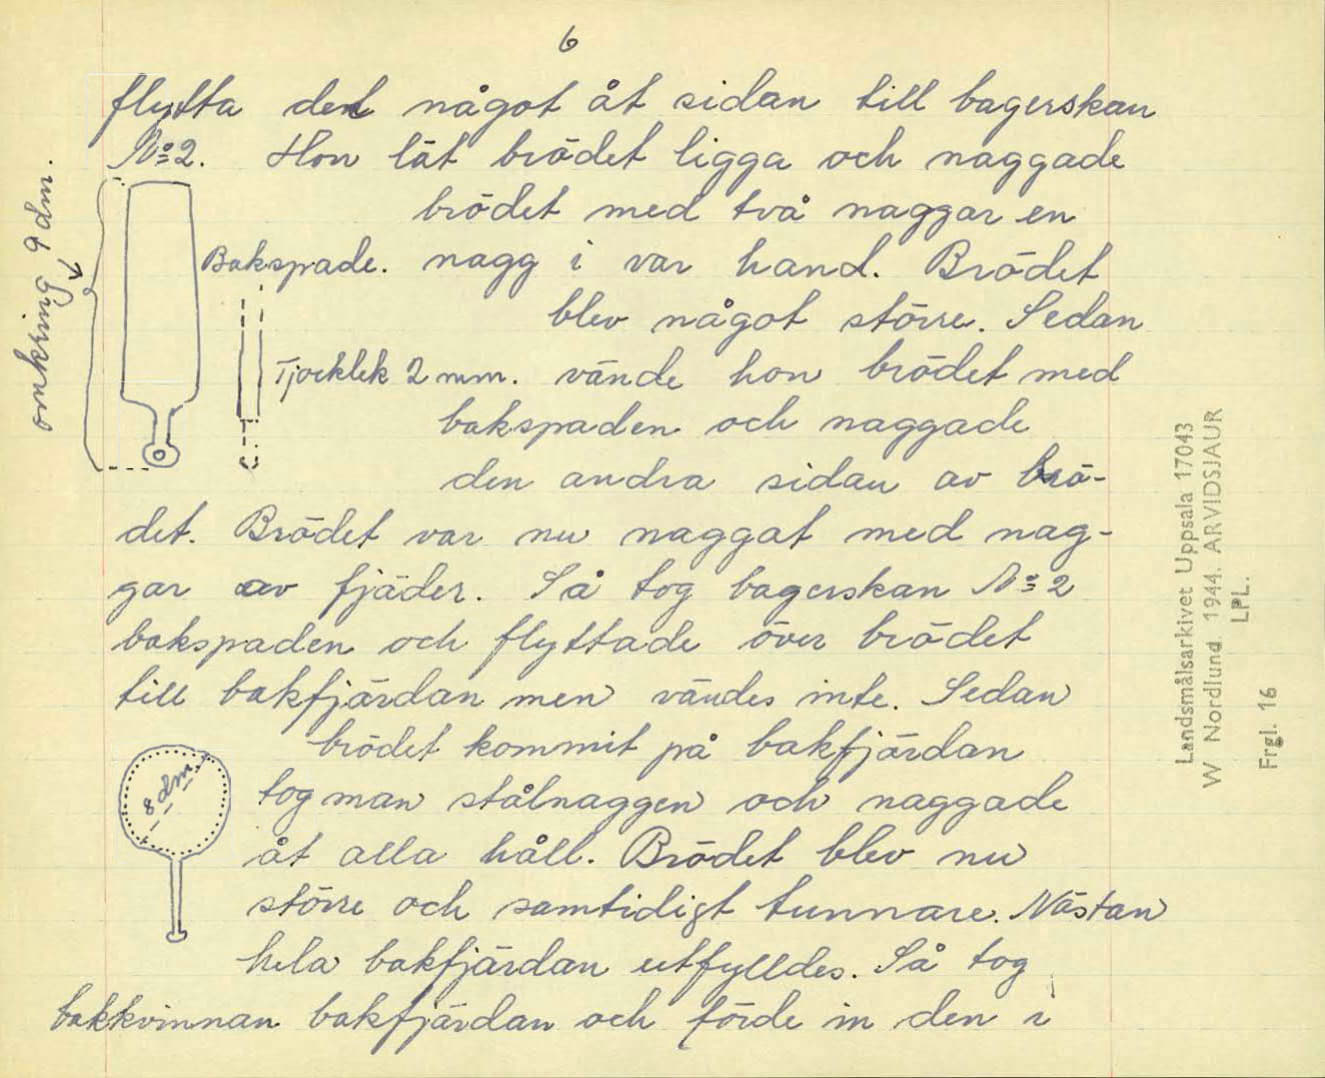 6
flytta det något åt sidan till bagerskan
No 2. Hon lät brödet ligga och naggade
brödet med två naggar en
Bakspade. nagg i var hand. Brödet
omkring 9 dm.
blev något större. Sedan
Tjocklek 2 mm. vände hon brödet med
bakspaden och naggade
den andra sidan av brö-
det. Brödet var nu naggat med nag-
gar av fjäder. Så tog bagerskan No 2
bakspaden och flyttade över brödet
till bakfjärdan men vändes inte. Sedan
brödet kommit på bakfjärdan
8 dm.
tog man stålnaggen och naggade
åt alla håll. Brödet blev nu
större och samtidigt tunnare. Nästan
hela bakfjärdan utfylldes. Så tog
bakkvinnan bakfjärdan och förde in den i
Landsmålsarkivet Uppsala 17043
W Nordlund. 1944. ARVIDSJAUR
LPL.
Frgl. 16